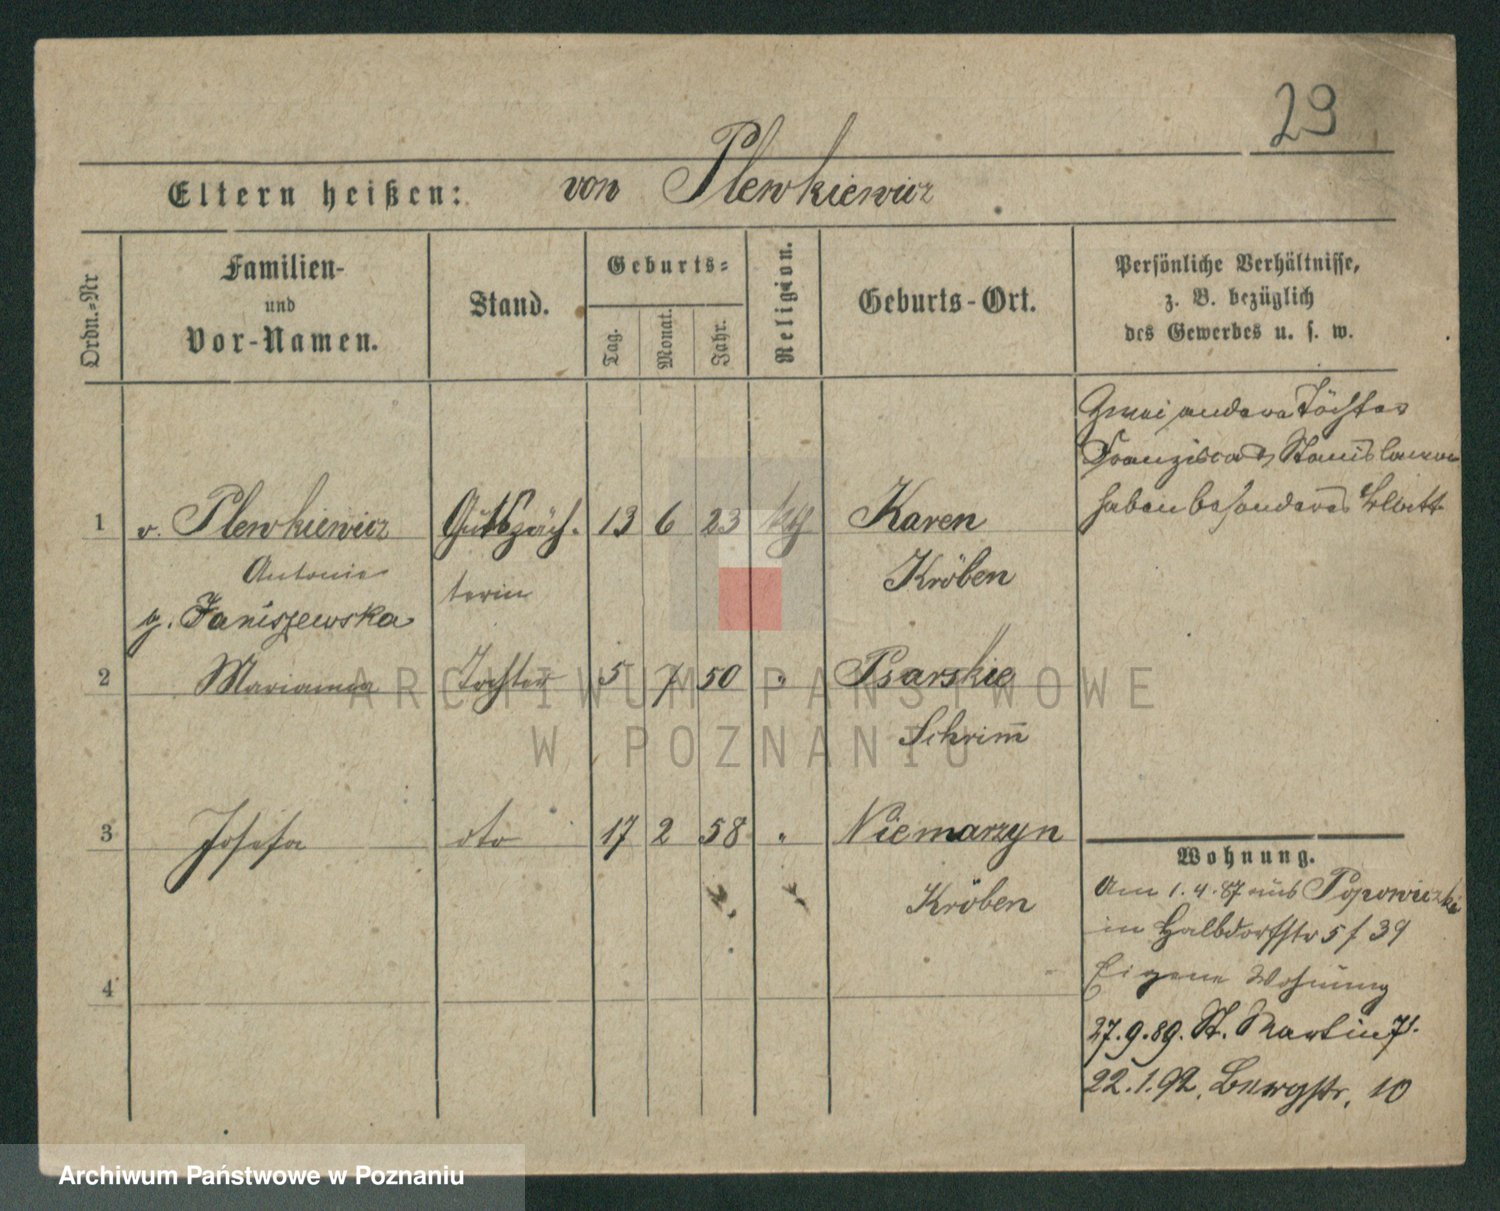 29
Eltern heißen: von Plewkiewicz
Ordn.-Nr
Familien-
und
Vor-Namen.
Stand.
Geburts-
Tag.
Monat.
Jahr.
Religion.
Geburts-Ort.
Persönliche Verhältnisse,
z. B. bezüglich
des Gewerbes u. s. w.
Zwei andere Töchter
Franzisca & Stanislawa
haben besonderes Blatt
1 v. Plewkiewicz Gutspäch- 13 6 23 kth Karen
Antonie terin Kröben
g. Janiszewska
2 Marianna Tochter 5 7 50 " Psarskie
Schrim̅
3 Josefa dto 17 2 58 " Niemarzyn
Kröben
4
Wohnung.
Am 1.4.87 aus Popowiczki
in Halbdorfstr 5 f 39
Eigene Wohnung
27.9.89. St. Martin 71.
22.1.92. Bergstr. 10
ARCHIWUM PAŃSTWOWE
W POZNANIU
Archiwum Państwowe w Poznaniu